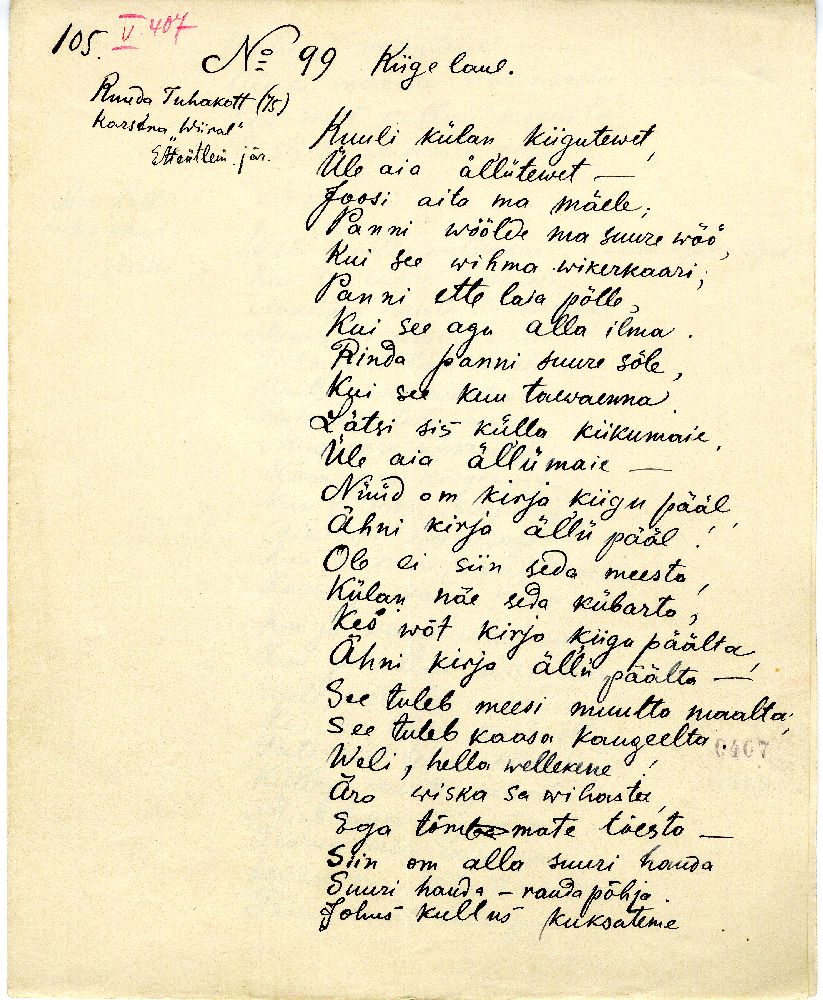 105. V 407
№ 99 Kiige laul.
Ruuda Tuhakott (75)
Karsina, "Wiiral"
jär.
Kuuli külan kiigutewet,
Üle aia ällütewet —
Joosi aita ma mäele;
Panni wöölde ma suure wöö,
Kui see wihma wikerkaari;
Panni ette laia põlle,
Kui see agu alla ilma.
Rinda panni suure sõle,
Kui see kuu taewaenna.
Lätsi sis külla kiikumaie,
Üle aia ällümaie —
Nüüd om kirja kiigu pääl,
Ähni kirja ällü pääl!
Olo ei siin seda meesta,
Külan näe seda kübarta,
Kes wõt kirja kiigu päälta,
Ähni kirja ällü päälta —
See tuleb meesi muulta maalta,
See tuleb kaasa kaugeelta.
Weli, hella wellekene!
Äro wiska sa wihasta,
Ega tõmmate tõesta —
Siin om alla suuri hauda
Suuri hauda – raudapõhja.
Johus kullus kuksateme
0407